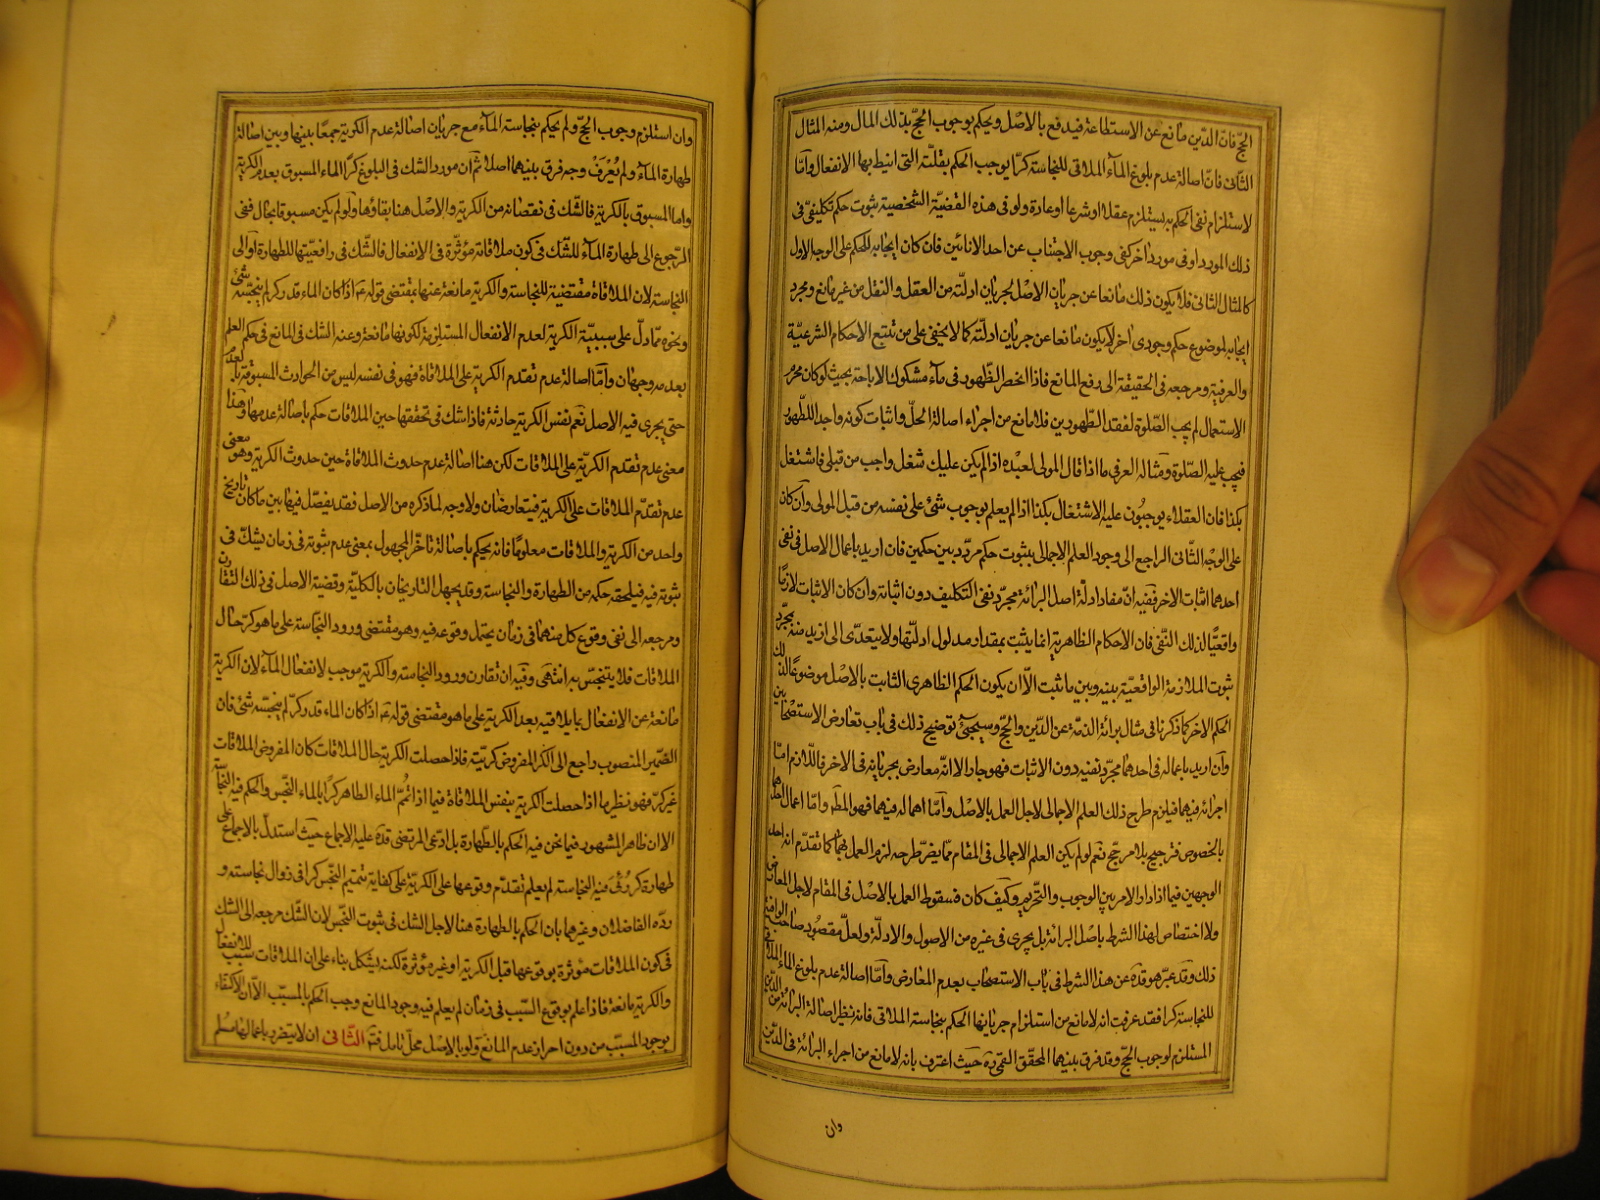 الحجّ فانّ الدّين مانع عن الاستطاعة فيدفع بالاصل ويحكم بوجوب الحجّ بذلك المال ومنه المثال
الثّانى فانّ اصالة عدم بلوغ المآء الملاقى للنجاسة كرّا يوجب الحكم بقلّته التى انيط بها الانفعال وامّا
لاستلزام نفى الحكم به يستلزم عقلا او شرعا او عادة ولو فى هذه القضيّة الشخصية ثبوت حكم تكليفىّ فى
ذلك المورد او فى مورد اخر كنفى وجوب الاجتناب عن احد الانائين فان كان ايجابه للحكم على الوجه الاول
كالمثال الثانى فلا يكون ذلك مانعا عن جريان الاصل لجريان ادلّته من العقل والنقل من غير مانع ومجرد
ايجابه لموضوع حكم وجودى اخر لا يكون مانعا عن جريان ادلّته كما لا يخفى على من تتبع الاحكام الشرعيّة
والعرفية ومرجعه فى الحقيقة الى رفع المانع فاذا انحصر الطّهور فى مآء مشكوك الاباحة بحيث لو كان محرم
الاستعمال لم يجب الصّلوة لفقد الطّهورين فلا مانع من اجراء اصالة الحلّ واثبات كونه واجدا للطّهور
فيجب عليه الصّلوة ومثاله العرفى ما اذا قال المولى لعبده اذا لم يكن عليك شغل واجب من قبلى فاشتغل
بكذا فان العقلاء يوجبون عليه الاشتغال بكذا اذا لم يعلم بوجوب شئ على نفسه من قبل المولى وان كان
على الوجه الثّانى الراجع الى وجود العلم الاجمالى بثبوت حكم مردّد بين حكمين فان اريد باعمال الاصل فى نفى
احدهما اثبات الاخر ففيه انّ مفاد ادلّة اصل البرائة مجرّد نفى التكليف دون اثباته وان كان الاثبات لازمًا
واقعيًّا لذلك النّفى فان الاحكام الظاهرية انما يثبت بمقدار مدلول ادلّتها ولا يتعدّى الى ازيد منه بمجرّد
ثبوت الملازمة الواقعيّة بينه وبين ما ثبت الاّ ان يكون الحكم الظاهرى الثابت بالاصل موضوعًا لذلك
الحكم الاخر كما ذكرنا فى مثال برائة الذمّة عن الدّين والحجّ وسيجئ توضيح ذلك فى باب تعارض الاستصحابين
وان اريد باعماله فى احدهما مجرّد نفيه دون الاثبات فهو جار الا انّه معارض بجريانه فى الاخر فاللّازم امّا
اجرائه فيهما فيلزم طرح ذلك العلم الاجمالى لاجل العمل بالاصل وامّا اهماله فيهما فهو المط وامّا اعمال احدهما
بالخصوص فترجيح بلا مرجّح نعم لو لم يكن العلم الاجمالى فى المقام ممّا يضرّ طرحه لزم العمل بهما كما تقدّم انه احد
الوجهين فيما اذا دار الامر بين الوجوب والتّحريم وكيف كان فسقوط العمل بالاصل فى المقام لاجل المعارض
ولا اختصاص لهذا الشرط باصل البرائة بل يجرى فى غيره من الاصول والادلّة ولعلّ مقصود صاحب الوافية
ذلك وقد عبّر هو قده عن هذا الشرط فى باب الاستصحاب بعدم المعارض وامّا اصالة عدم بلوغ المآء الملاقى
للنجاسة كرا فقد عرفت انه لا مانع من استلزام جريانها الحكم بنجاسة الملاقى فانه نظير اصالة البرائة من الدّين
المستلزم لوجوب الحجّ وقد فرق بينهما المحقّق القمى ره حيث اعترف بانه لا مانع من اجراء البرائة فى الدّين
وان
وان استلزم وجوب الحجّ ولم يحكم بنجاسة المآء مع جريان اصالة عدم الكرية جمعًا بينها وبين اصالة
طهارة المآء ولم يُعْرَفْ وجه فرق بينهما اصلا ثم ان مورد الشك فى البلوغ كرّا الماء المسبوق بعدم الكرية
واما المسبوق بالكرية فالشّك فى نقصانه من الكرية والاصل هنا بقاؤها ولو لم يكن مسبوقا بحال ففى
الرّجوع الى طهارة المآء للشّك فى كون ملاقاته مؤثّرة فى الانفعال فالشّك فى رافعيّتها للطهارة او الى
النجاسة لان الملاقاة مقتضية للنجاسة والكرية مانعة عنها بمقتضى قوله ع اذا كان الماء قدر كر لم ينجّسه شئ
ونحوه ممّا دلّ على سببيّة الكرية لعدم الانفعال المستلزمة لكونها مانعة وعنه الشك فى المانع فى حكم العلم
بعدمه وجهان وامّا اصالة عدم تقدم الكرية على الملاقاة فهو فى نفسه ليس من الحوادث المسبوقة بالعدم
حتى يجرى فيه الاصل نعم نفس الكرية حادثة فاذا شك فى تحققها حين الملاقات حكم باصالة عدمها وهذا
معنى عدم تقدم الكريّة على الملاقات لكن هنا اصالة عدم حدوث الملاقاة حين حدوث الكرية وهو معنى
عدم تقدّم الملاقات على الكرية فيتعارضان ولا وجه لما ذكره من الاصل فقد يفصّل فيها بين ما كان تاريخ
واحد من الكرية والملاقات معلومًا فانه يحكم باصالة تاخّر المجهول بمعنى عدم ثبوته فى زمان يشكّ فى
ثبوته فيه فيلحقه حكمه من الطهارة والنجاسة وقد يجهل التاريخان بالكليّة وقضية الاصل فى ذلك التقارن
ومرجعه الى نفى وقوع كل منهما فى زمان يحتمل وقوعه فيه وهو مقتضى ورود النّجاسة على ما هو كرّ حال
الملاقات فلا يتنجّس به انتهى وفيه ان تقارن ورود النجاسة والكرية موجب لانفعال المآء لان الكرية
مانعة عن الانفعال بما يلاقيه بعد الكرية على ما هو مقتضى قوله ع اذا كان الماء قدر كرّ لم ينجّسه شئ فان
الضّمير المنصوب راجع الى الكرّ المفروض كريّته فاذا حصلت الكرية حال الملاقات كان المفروض الملاقات
غير كرّ فهو نظير ما اذا حصلت الكرية بنفس الملاقاة فيما اذا تُمّم الماء الطاهر كرًا بالماء النّجس والحكم فيه النّجاسة
الا ان ظاهر المشهور فيما نحن فيه الحكم بالطّهارة بل ادّعى المرتضى قده عليه الاجماع حيث استدلّ بالاجماع على
طهارة كر رُئى فيه النجاسة لم يعلم تقدّم وقوعها على الكريّة على كفاية تتميم النّجس كرا فى زوال نجاسته و
ردّه الفاضلان وغيرهما بان الحكم بالطهارة هنا لاجل الشك فى ثبوت التّنجّس لان الشّك مرجعه الى الشك
فى كون الملاقات مؤثرة بوقوعها قبل الكرية او غير مؤثرة لكنه يشكل بناء على ان الملاقات سبب للانفعال
والكرية مانعة فاذا علم بوقوع السّبب فى زمان لم يعلم فيه وجود المانع وجب الحكم بالمسبّب الاّ ان الاكتفاء
بوجود المسبّب من دون احراز عدم المانع ولو بالاصل محلّ تامل فتم الثّانى ان لا يتضرر باعمالها مسلم